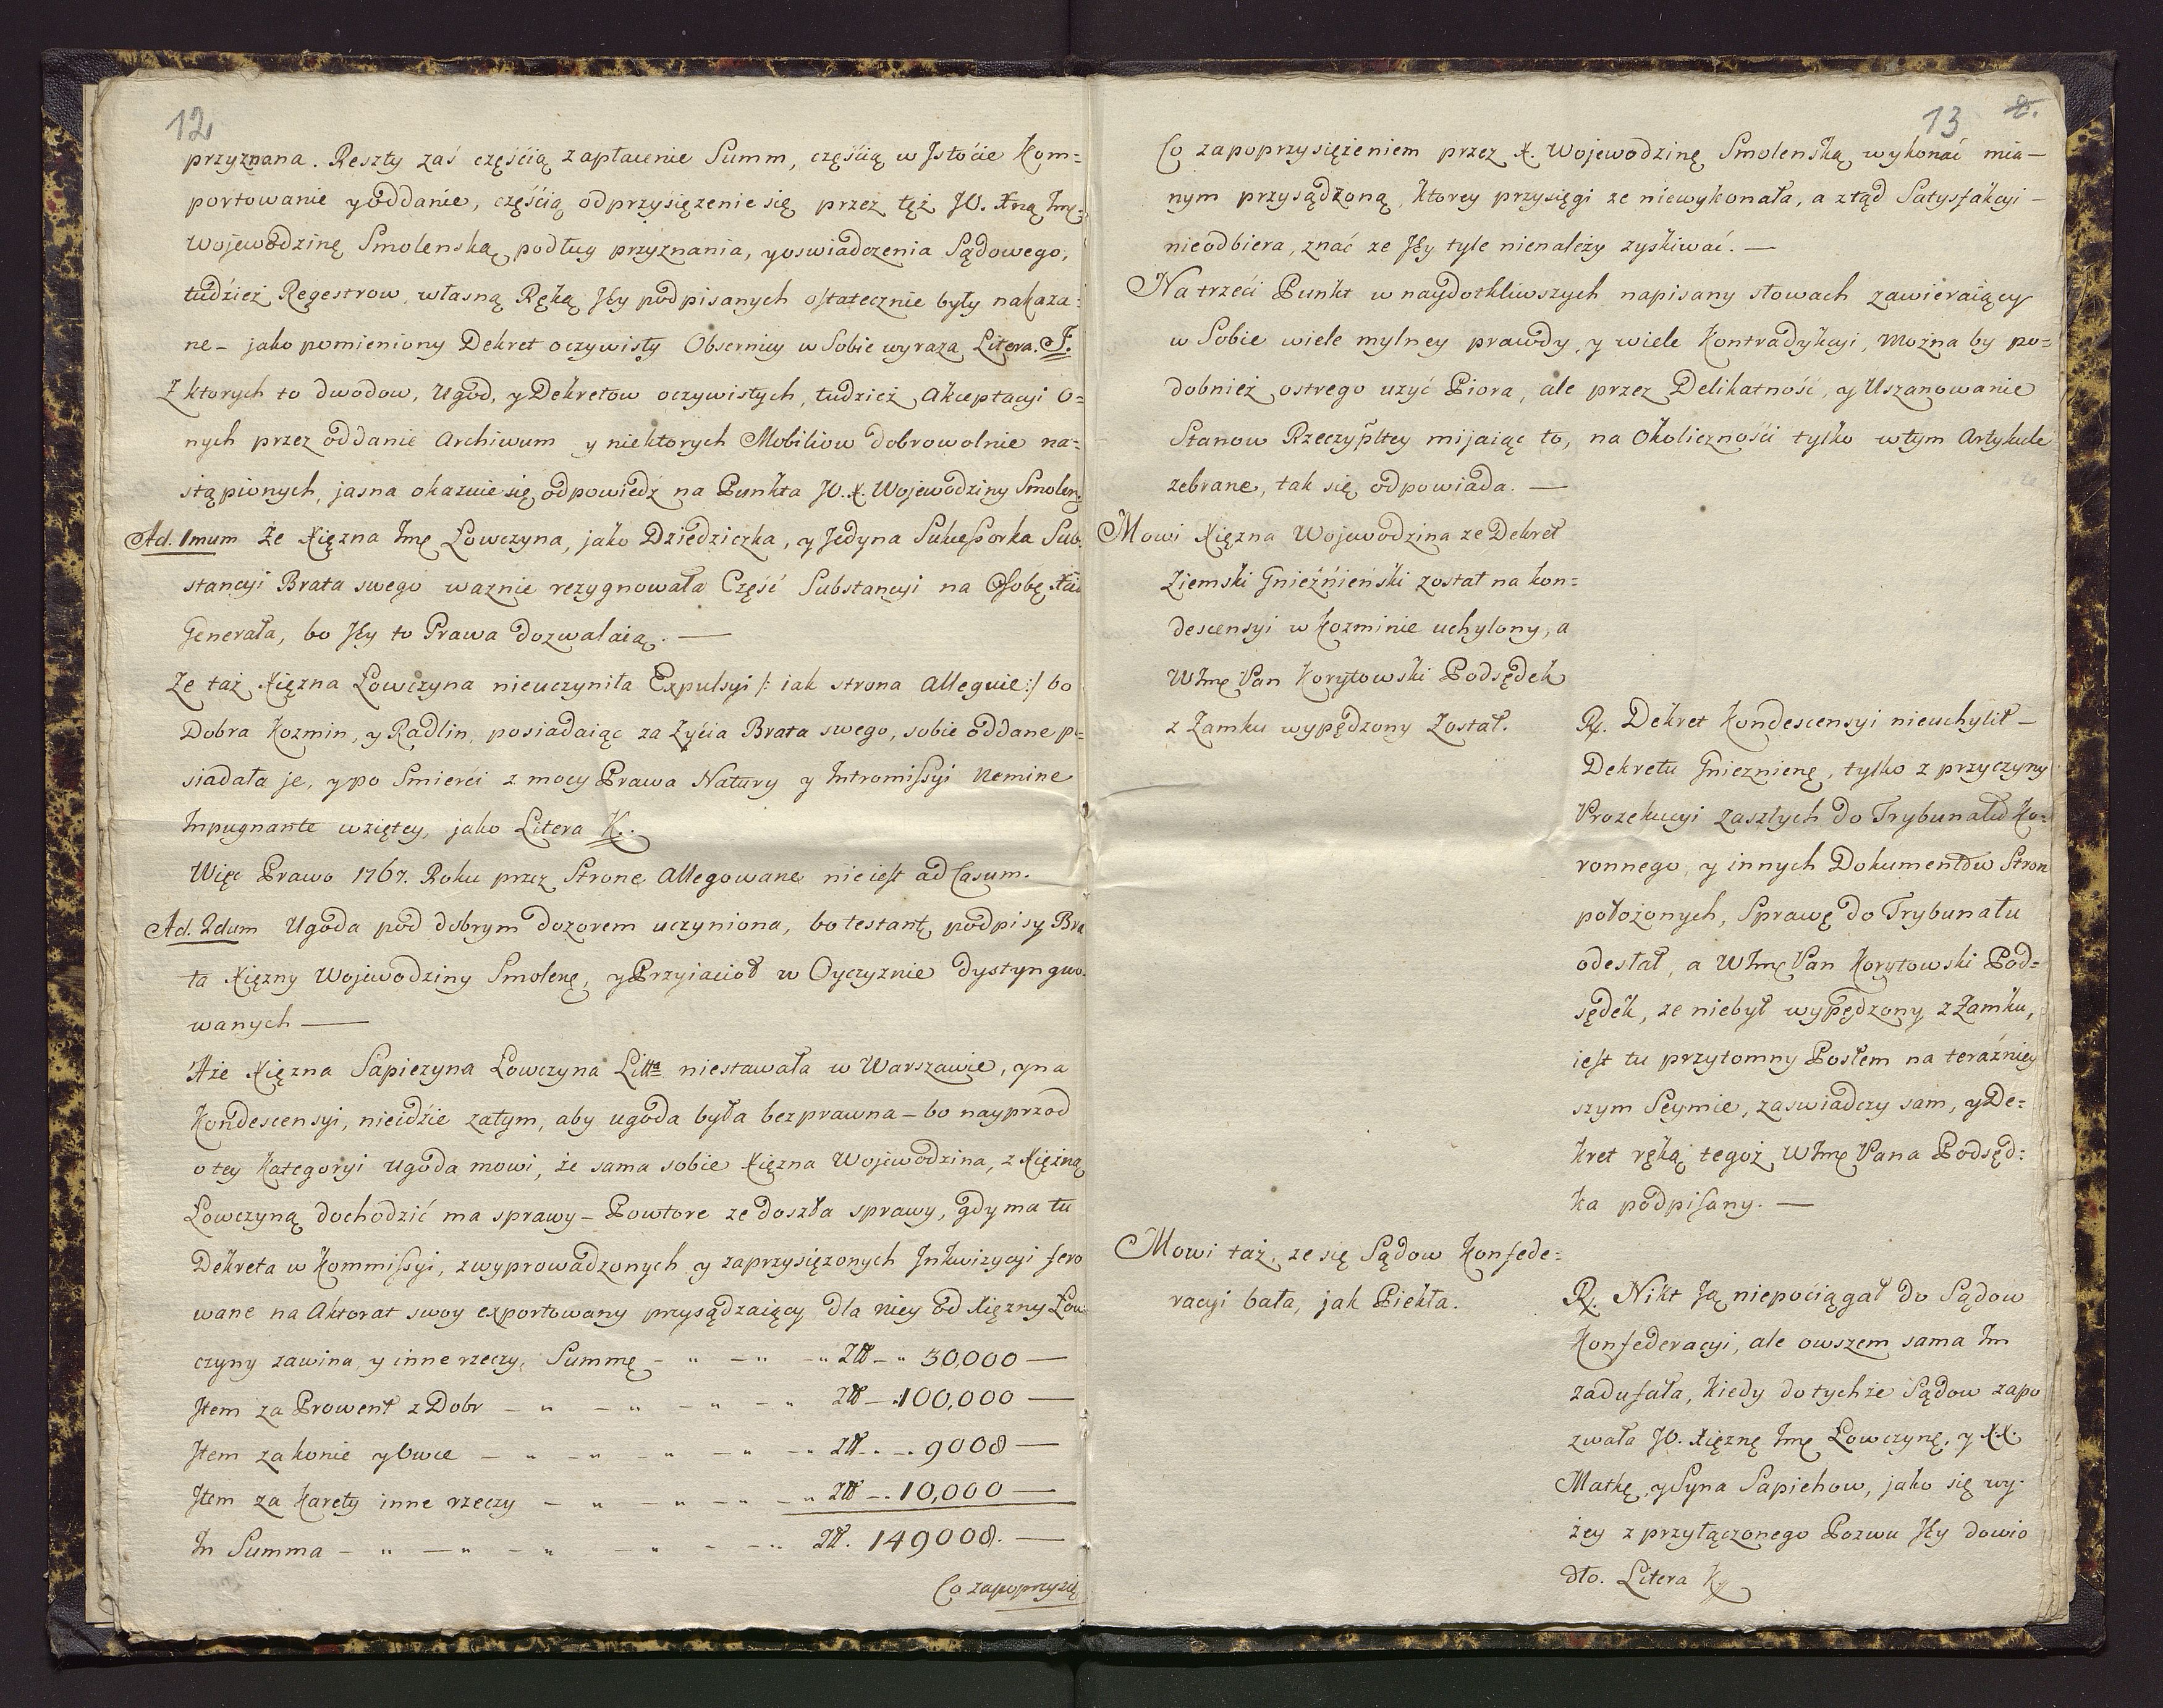 12
przyznana. Reszty zaś częścią zapłacenie Summ, częścią w Jstocie Kom=
portowanie y oddanie, częścią odprzysięzenie się przez tęż JO. Xnę Jmę
Wojewodzinę Smolenską, podług przyznania, y oswiadczenia Sądowego,
tudzież Regestrow własną Ręką JEy podpisanych ostatecznie były nakaza=
ne – jako pomieniony Dekret oczywisty Obserniey w Sobie wyraza Litera. F.
Z ktorych to dwodow, Ugod, y Dekretow oczywistych, tudzież Akceptacyi o=
nych przez oddanie Archiwum y niektorych Mobiliow dobrowolnie na=
stąpionych, jasna okazuie się odpowiedź na Punkta JO. X. Wojewodziny Smolen
Ad. 1mum Ze Xięzna Jmę Łowczyna, jako Dziedziczka, y Jedyna Sukcessorka Sub
stancyi Brata swego waznie rezygnowała Część Substancyi na Osobę Xcia
Generała, bo JEy to Prawa dozwalaią. —
Ze taż Xięzna Łowczyna nieuczyniła Expulsyi /: iak strona Alleguie :/ bo
Dobra Kozmin, y Radlin, posiadaiąc za Zycia Brata swego, sobie oddane po=
siadała je, y po Smierci z mocy Prawa Natury y Intromissyi Nemine
Inpugnante wziętey, jako Litera K.
Więc Prawo 1767. Roku przez Stronę Allegowane nie iest ad Casum.
Ad. 2dum Ugoda pod dobrym dozorem uczyniona, bo testant, podpisy Bra
ta Xięzny Wojewodziny Smolenę, y Przyiacioł w Oyczyznie dystyngwo
wanych —
A że Xięzna Sapiezyna Łowczyna Litta niestawała w Warszawie, y na
Kondescensyi, nieidzie zatym, aby ugoda była bezprawna – bo nayprzod
o tey Kategoryi Ugoda mowi, że sama sobie Xięzna Wojewodzina, z Xięzną
Łowczyną dochodzić ma sprawy – Powtore ze doszła sprawy, gdy ma tu
Dekreta w Kommissyi, z wyprowadzonych y zaprzysięzonych Jnkwizycyi fero
wane na Aktorat swoy exportowany przysądzaiący dla niey od Xięzny Łow
czyny zawina, y inne rzeczy, Summę – " – " – " Zł – " 30,000 —
Jtem za Prowent z Dobr – " – " – " – " Zł – 100,000 —
Jtem za konie y Owce – " – " – " – " – " Zł – " – 9008 —
Jtem za Karety inne rzeczy – " – " – " – " Zł – " 10,000 —
In Summa – " – " – " – " – " Zł. 149008. —
Co zapoprzysię
13 8.
Co zapoprzysiężeniem przez X. Wojewodzinę Smolenską wykonać mia –
nym przysądzoną, ktorey przysięgi ze niewykonała, a ztąd Satysfakcyi –
nieodbiera, znać ze JEy tyle nienależy zyskiwać. —
Na trzeci Punkt w naydotkliwszych napisany słowach zawieraiący
w Sobie wiele mylney prawdy, y wiele Kontradykcyi, można by po=
dobnież ostrego użyć Piora, ale przez Delikatność, y Uszanowanie
Stanow Rzeczypltey mijaiąc to, na Okoliczności tylko w tym Artykule
zebrane, tak się odpowiada. —
Mowi Xięzna Wojewodzina ze Dekret
Ziemski Gnieźnieński został na kon=
descensyi w Kozminie uchylony, a
WJmę Pan Korytowski Podsędek
z Zamku wypędzony został.
Rz. Dekret Kondescensyi nieuchylił –
Dekretu Gnieznienę, tylko z przyczyny
Prozekucyi zaszłych do Trybunału Ko=
ronnego, y innych Dokumentow Stron
położonych, Sprawę do Trybunału
odesłał, a WJmę Pan Korytowski Pod=
sędek, ze niebył wypędzony z Zamku,
iest tu przytomny Posłem na teraźniey
szym Seymie, zaswiadczy sam, y De=
kret ręką tegoż WJmę Pana Podsęd=
ka podpisany. —
Mowi taż, ze się Sądow Konfede=
racyi bała, jak Piekła.
R. Nikt Ją niepociągał do Sądow
Konfederacyi, ale owszem sama Im
zadufała, kiedy do tychże Sądow zapo
zwała JO. Xięznę Jmę Łowczynę, y XX.
Matkę, y Syna Sapiehow, jako się wy=
żey z przyłączonego Pozwu JEy dowio
dło. Litera K.